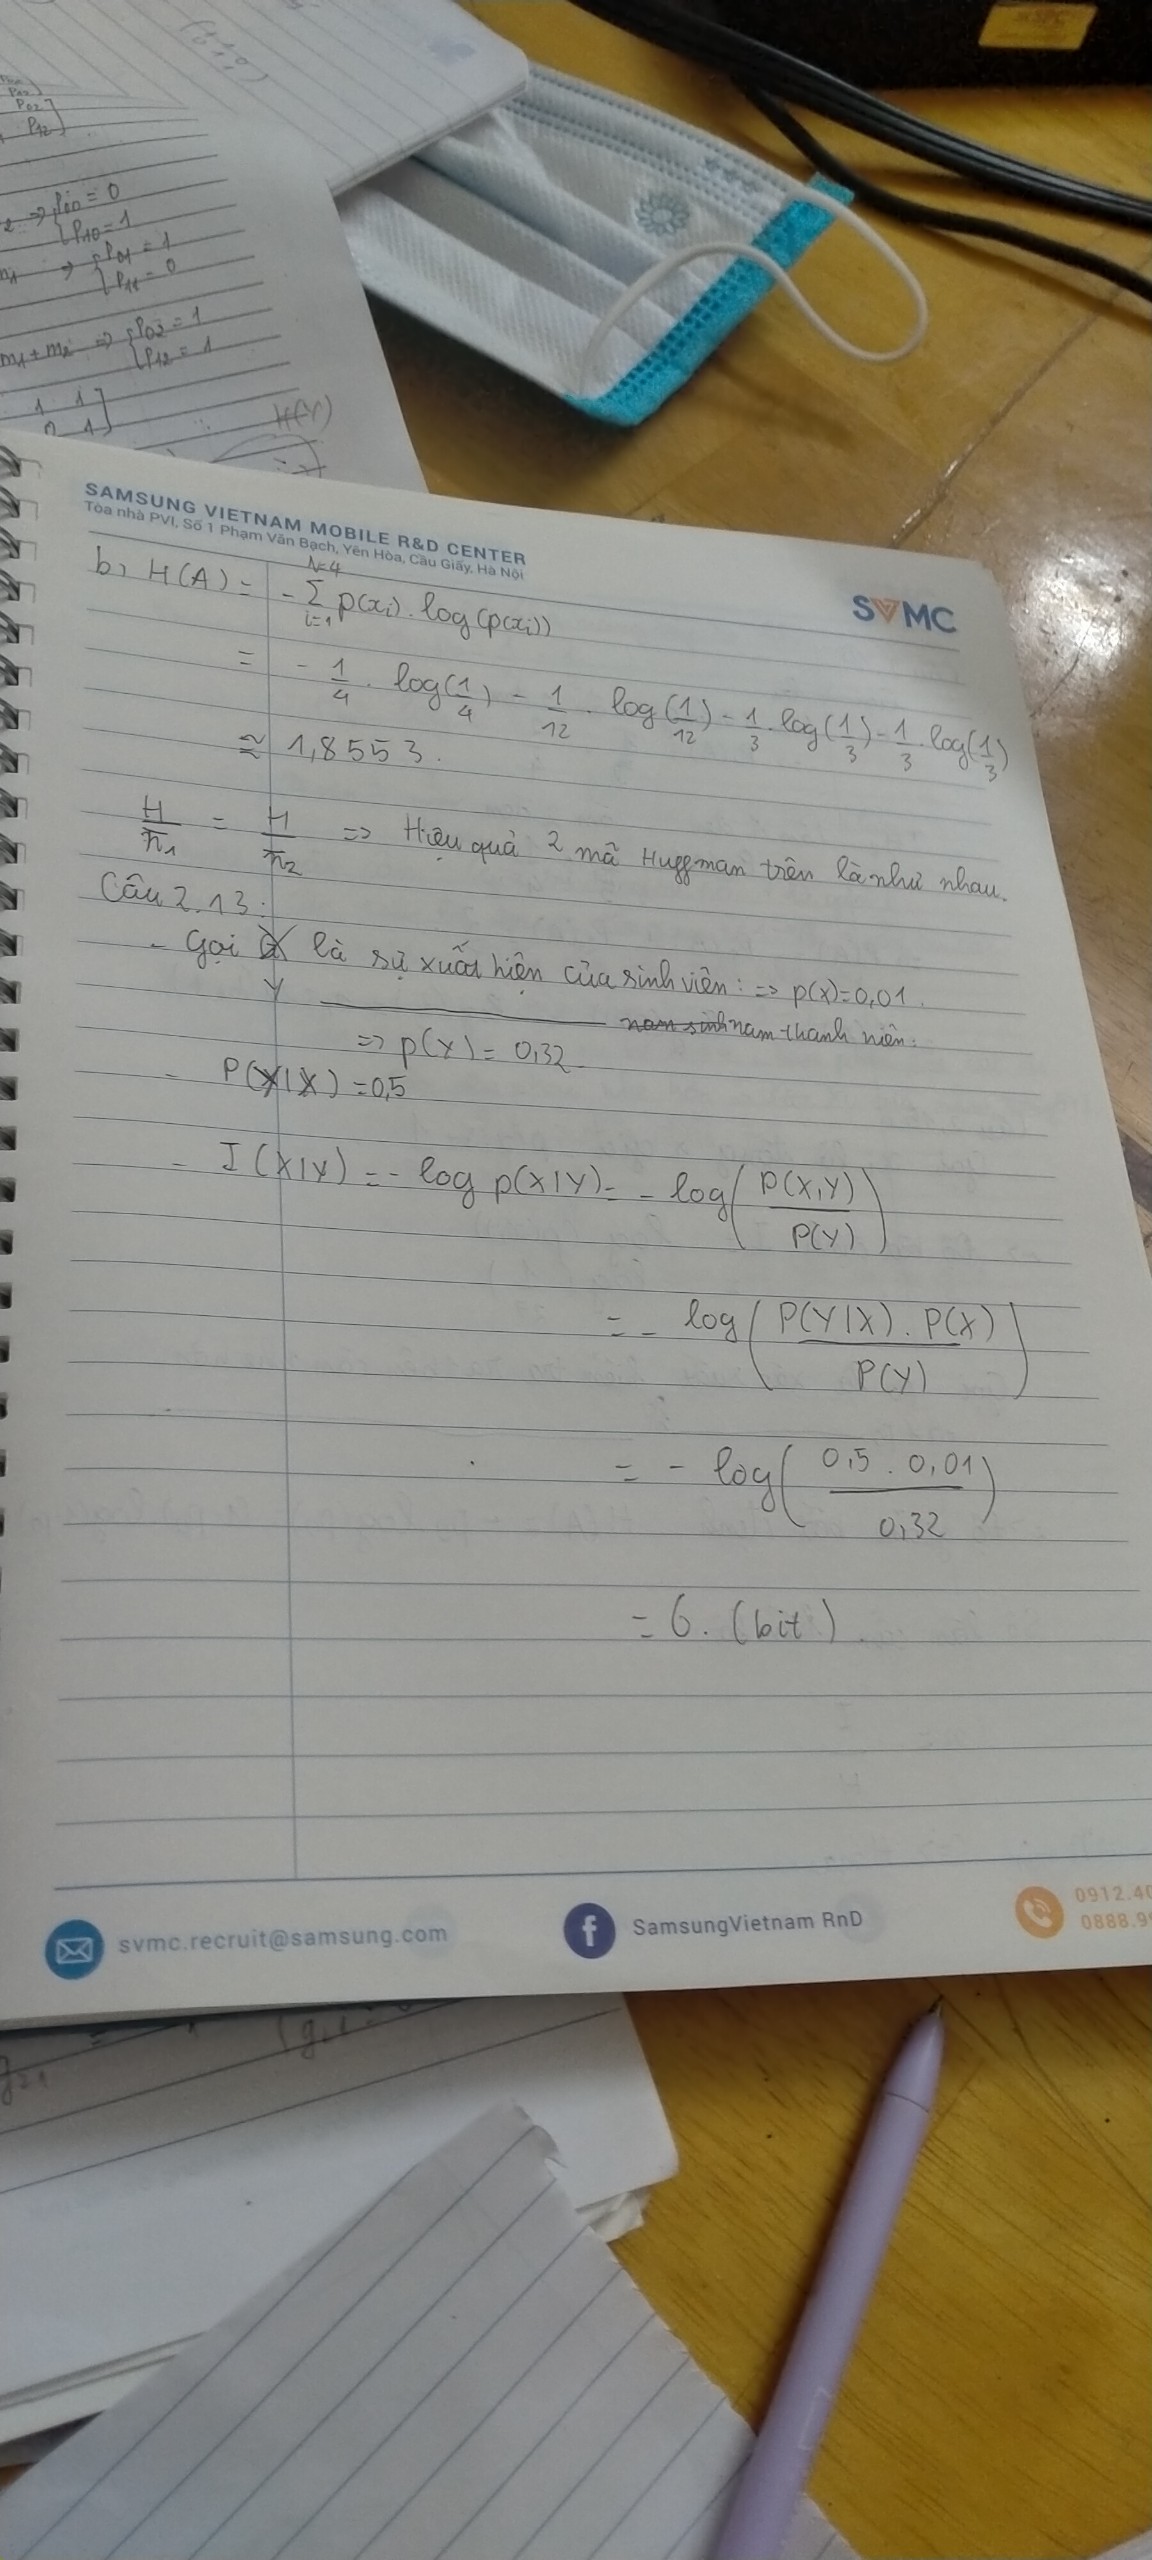 P02
P12
P00 = 0
P10 = 1
P01 = 1
P11 = 0
m1 + m2 => P02 = 1
P12 = 1
1 1
0 1
H(Y)
SAMSUNG VIETNAM MOBILE R&D CENTER
Tòa nhà PVI, Số 1 Phạm Văn Bạch, Yên Hòa, Cầu Giấy, Hà Nội
SVMC
b, H(A) = - N=4 Σ i=1 p(xi) . log(p(xi))
= - 1/4 . log(1/4) - 1/12 . log(1/12) - 1/3 . log(1/3) - 1/3 . log(1/3)
≈ 1,8553.
H/n̄1 = H/n̄2 => Hiệu quả 2 mã Huffman trên là như nhau.
Câu 2.13:
- Gọi X là sự xuất hiện của sinh viên: => p(X)=0,01.
Y ———— nam sinh nam thanh niên:
=> p(Y) = 0,32
- P(Y|X) = 0,5
- I(X|Y) = - log p(X|Y) = - log( P(X,Y) / P(Y) )
= - log( P(Y|X) . P(X) / P(Y) )
= - log( 0,5 . 0,01 / 0,32 )
= 6. (bit)
svmc.recruit@samsung.com
SamsungVietnam RnD
0912.40
0888.99